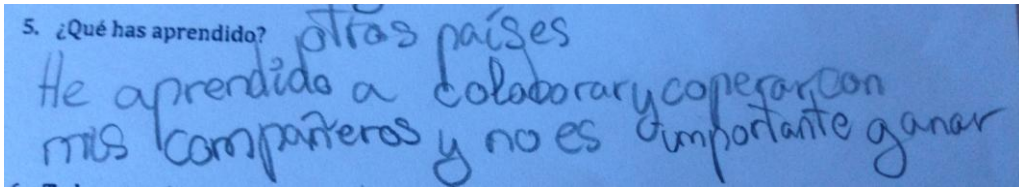 5. ¿Qué has aprendido? otros países
He aprendido a colaborar y coperar con
mis compañeros y no es importante ganar